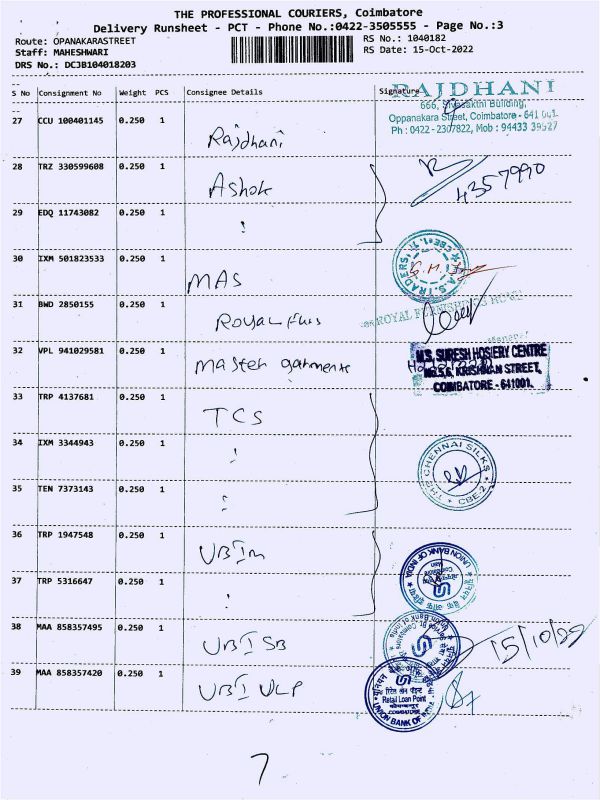 THE PROFESSIONAL COURIERS, Coimbatore
Delivery Runsheet - PCT - Phone No.:0422-3505555 - Page No.:3
Route: OPANAKARASTREET
RS No.: 1040182
Staff: MAHESHWARI
RS Date: 15-Oct-2022
DRS No.: DCJB104018203
S No Consignment No Weight PCS Consignee Details Signature
RAJDHANI
666, Sivasakthi Building,
Oppanakara Street, Coimbatore - 641 001.
Ph : 0422 - 2307822, Mob : 94433 39527
27 CCU 100401145 0.250 1 Rajdhani
28 TRZ 330599608 0.250 1 Ashok
4357990
29 EDQ 11743082 0.250 1 "
30 IXM 501823533 0.250 1 MAS
A.S. TRADERS
31 BWD 2850155 0.250 1 Royal
ROYAL FURNISHINGS HOME
32 VPL 941029581 0.250 1 Master garments
M.S. SURESH HOSIERY CENTRE
KRISHNAN STREET,
COIMBATORE - 641001.
33 TRP 4137681 0.250 1 TCS
34 IXM 3344943 0.250 1 "
THE CHENNAI SILKS
CBE-2
35 TEN 7373143 0.250 1 "
36 TRP 1947548 0.250 1 UBI m
UNION BANK OF INDIA
37 TRP 5316647 0.250 1 "
38 MAA 858357495 0.250 1 UBI SB
15/10/22
39 MAA 858357420 0.250 1 UBI ULP
Retail Loan Point
COIMBATORE
UNION BANK OF INDIA
7